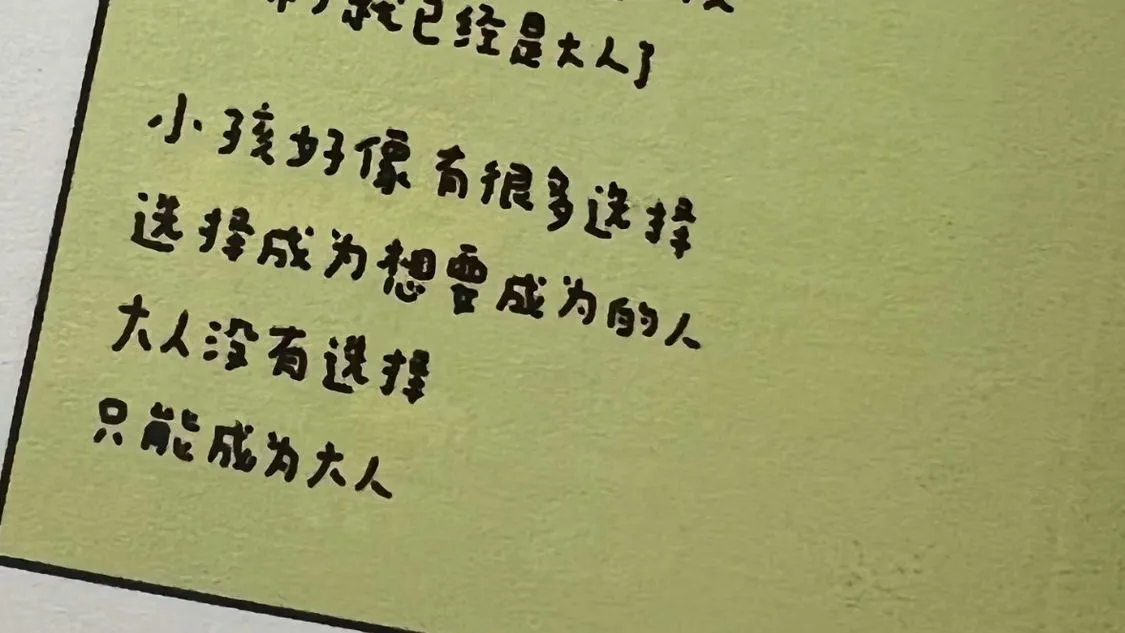 就已经是大人了
小孩好像有很多选择
选择成为想要成为的人
大人没有选择
只能成为大人